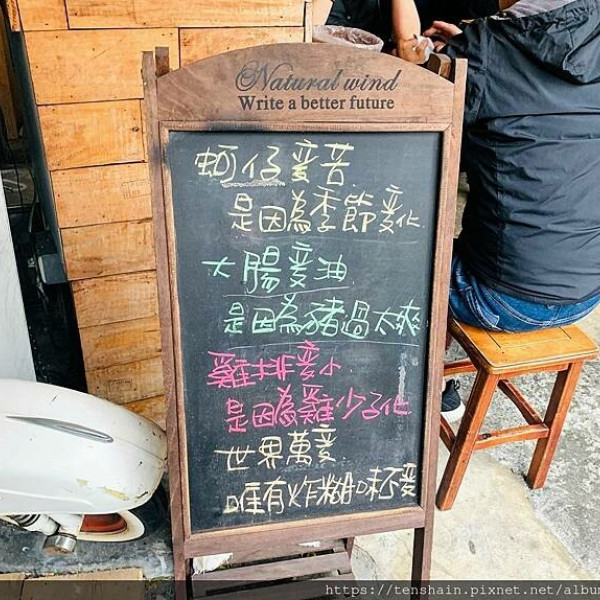 Natural wind
Write a better future
蚵仔變苦
是因為季節變化
大腸變油
是因為豬過太爽
雞排變小
是因為雞少子化
世界萬變
唯有炸粿味不變
https://tenshain.pixnet.net/albu